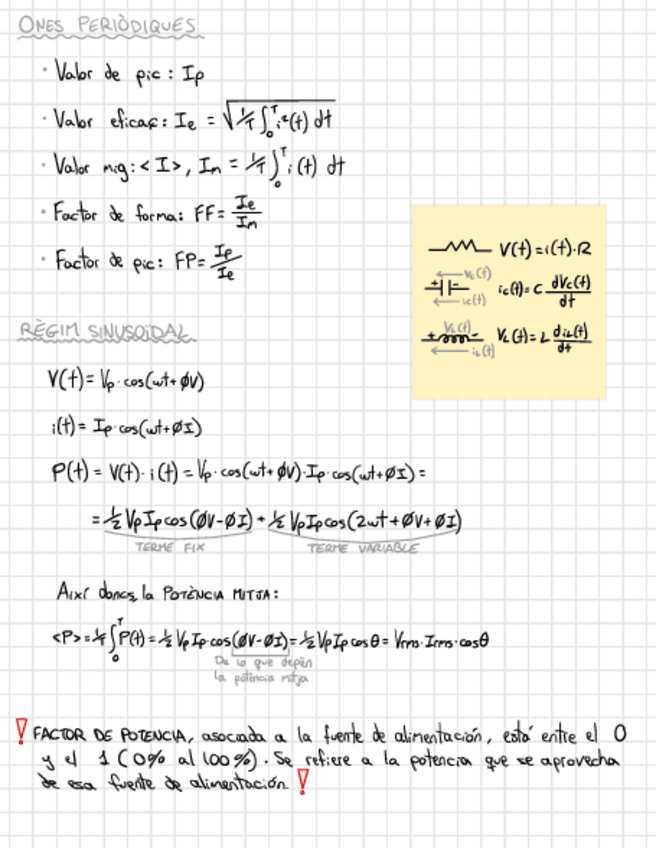 ONES PERIÒDIQUES
· Valor de pic: Ip
· Valor eficaç: Ie = √(1/T ∫₀ᵀ i²(t) dt)
· Valor mig: <I>, Im = 1/T ∫₀ᵀ i(t) dt
· Factor de forma: FF = Ie/Im
· Factor de pic: FP = Ip/Ie
V(t) = i(t)·R
Vc(t)
+ -
ic(t) = C dVc(t)/dt
ic(t)
VL(t)
+ -
VL(t) = L diL(t)/dt
iL(t)
RÈGIM SINUSOÏDAL
V(t) = Vp·cos(ωt+ØV)
i(t) = Ip·cos(ωt+ØI)
P(t) = V(t)·i(t) = Vp·cos(ωt+ØV)·Ip·cos(ωt+ØI) =
= ½ VpIpcos(ØV-ØI) + ½ VpIpcos(2ωt+ØV+ØI)
TERME FIX
TERME VARIABLE
Així doncs, la POTÈNCIA MITJA:
<P> = 1/T ∫₀ᵀ P(t) = ½ VpIp·cos(ØV-ØI) = ½ VpIp cosθ = Vrms·Irms·cosθ
De lo que depèn
la potència mitja
! FACTOR DE POTENCIA, asociada a la fuente de alimentación, está entre el 0
y el 1 (0% al 100%). Se refiere a la potencia que se aprovecha
de esa fuente de alimentación. !